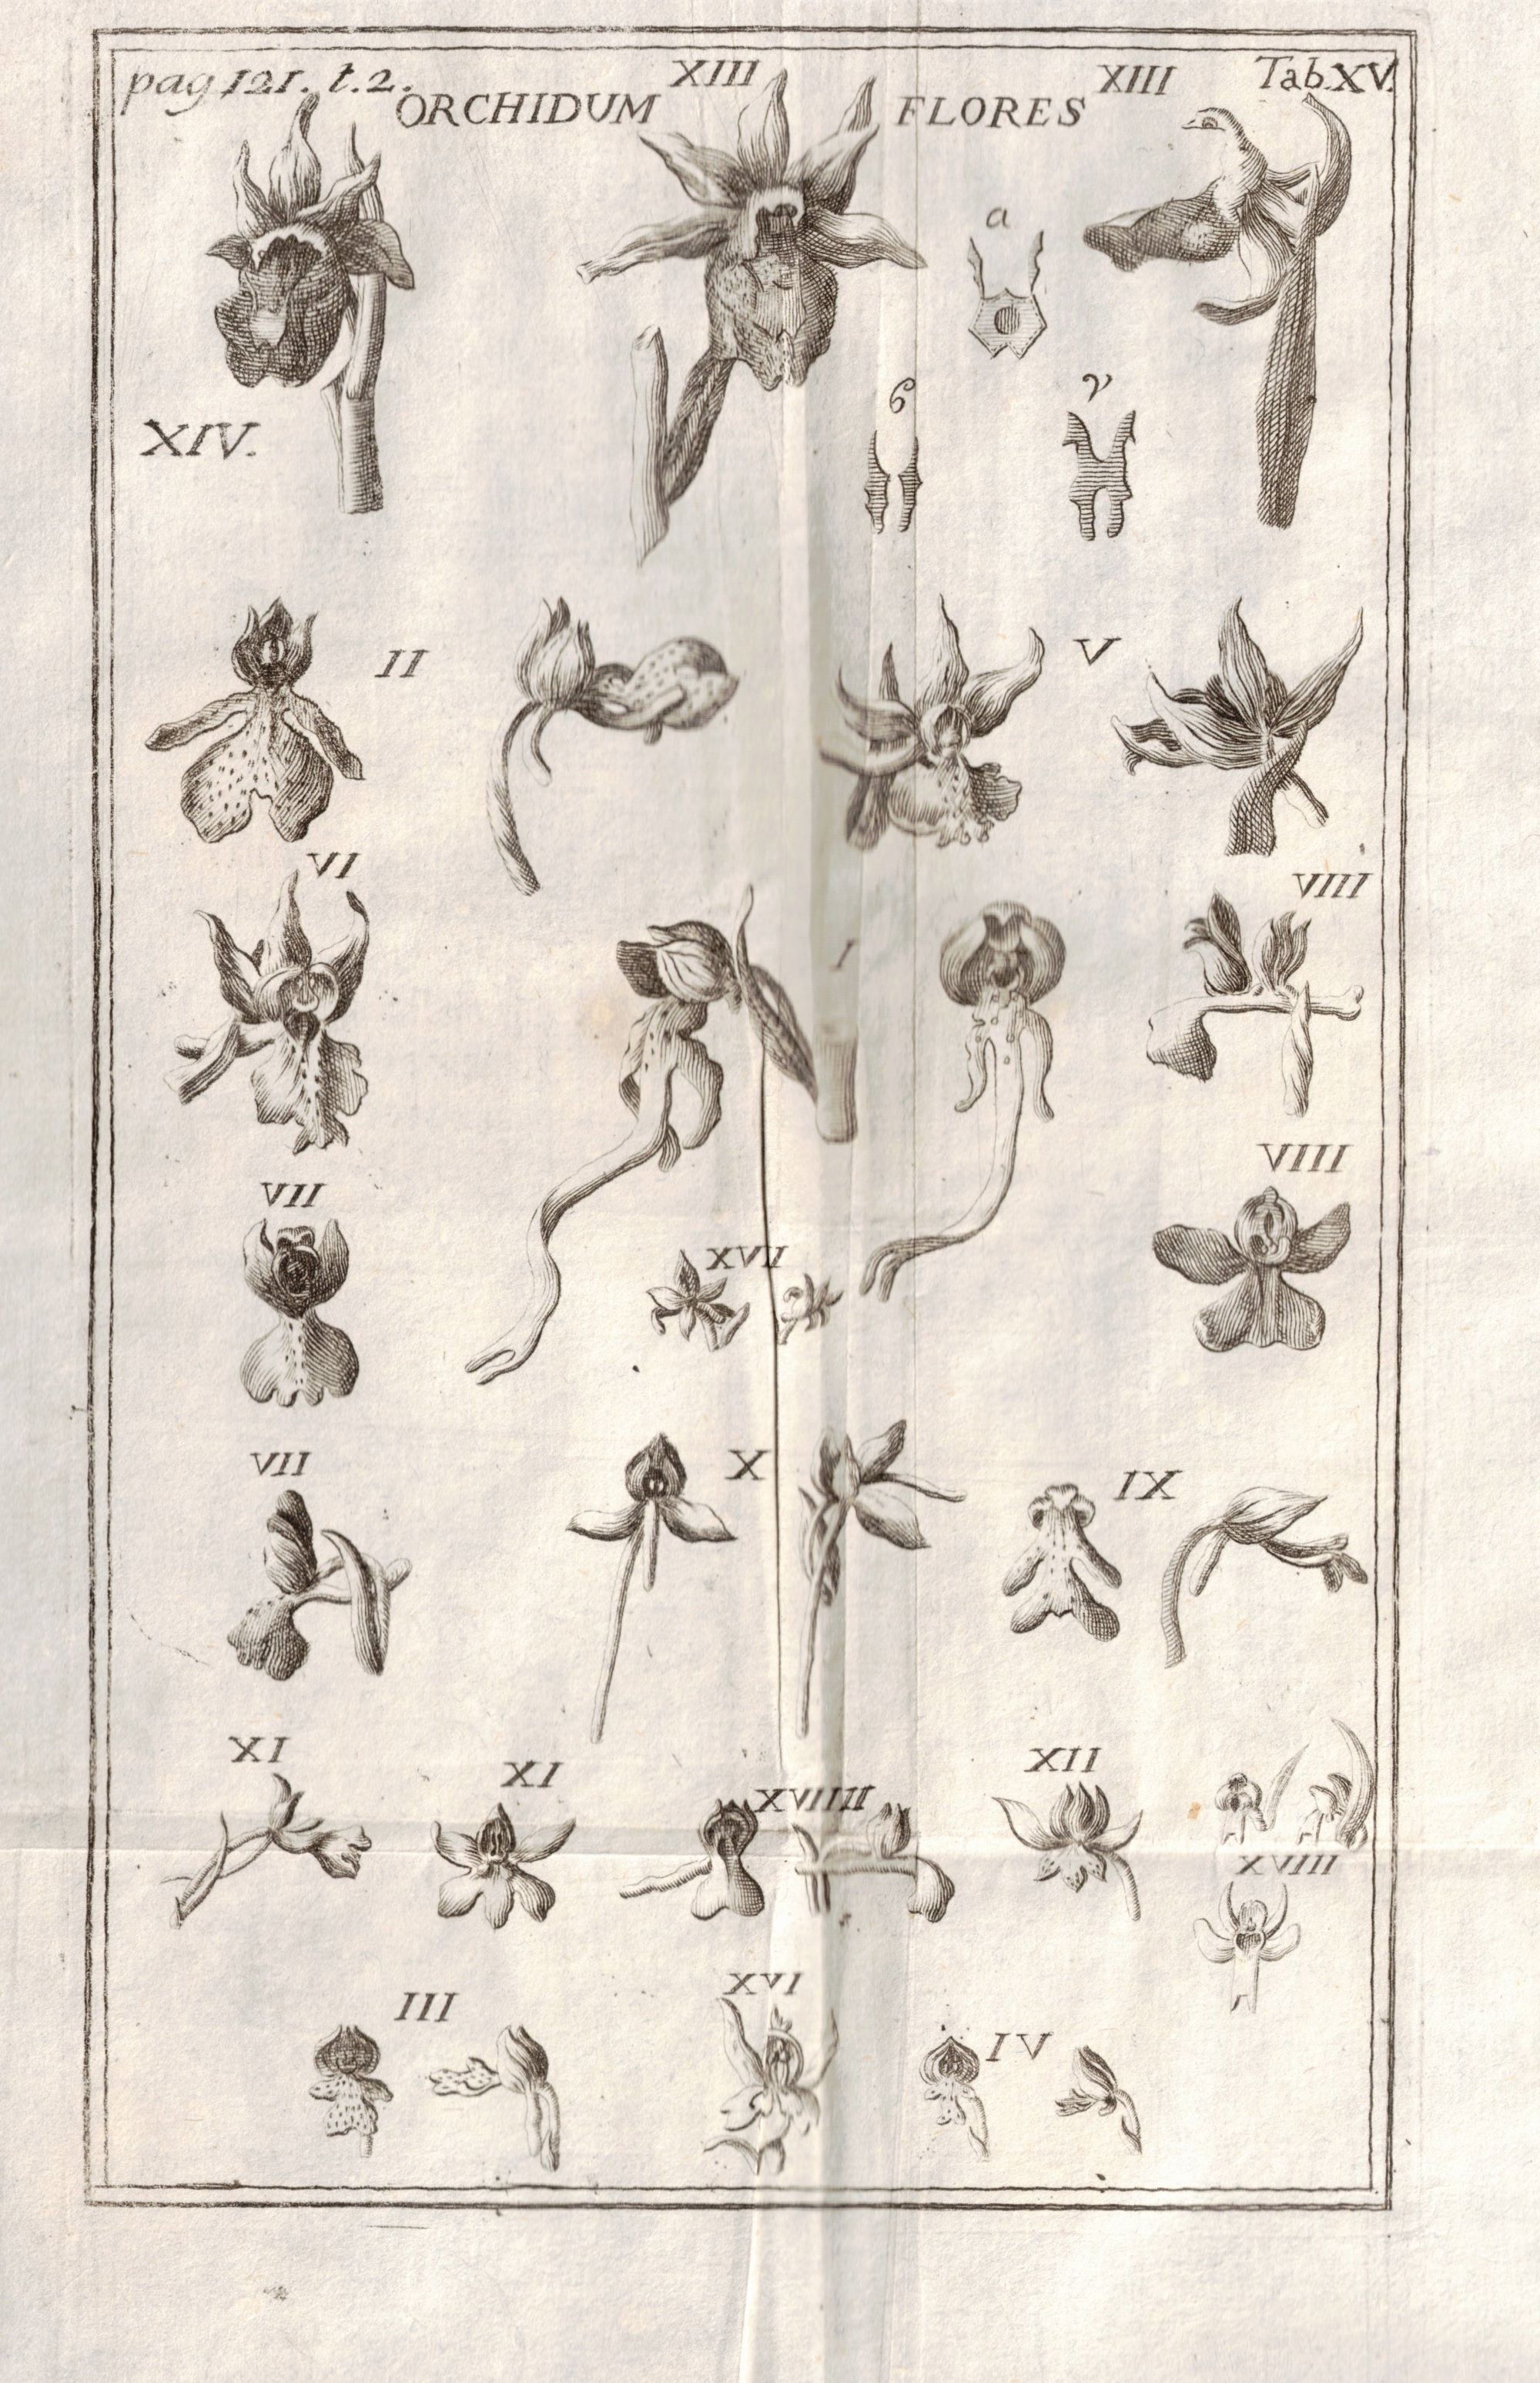 pag 121. t. 2.
ORCHIDUM
XIII
FLORES
XIII
Tab. XV.
a
6
γ
XIV.
II
V
VI
VIII
I
VIII
VII
XVII
VII
X
IX
XI
XI
XVIIII
XII
XVIII
III
XVI
IV